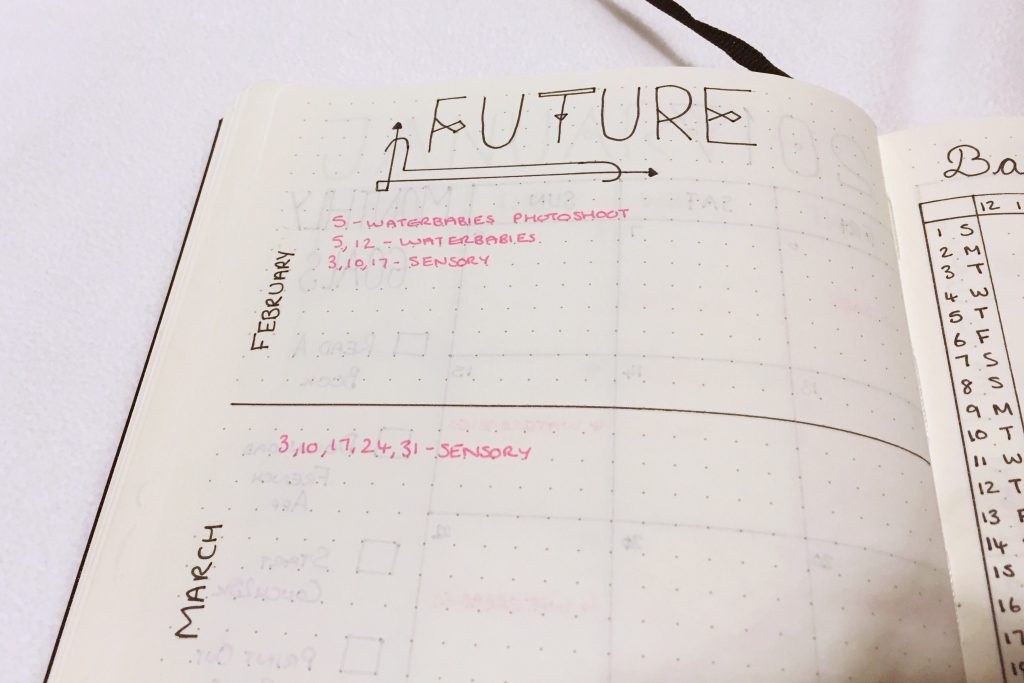 FUTURE
FEBRUARY
5 - WATERBABIES PHOTOSHOOT
5, 12 - WATERBABIES.
3, 10, 17 - SENSORY
MARCH
3, 10, 17, 24, 31 - SENSORY
Ba
12 1
1 S
2 M
3 T
4 W
5 T
6 F
7 S
8 S
9 M
10 T
11 W
12 T
13 F
14
15
16
17